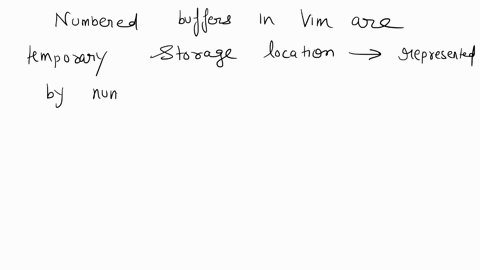 Numbered buffers in Vim are
temporary storage location → represented
by num